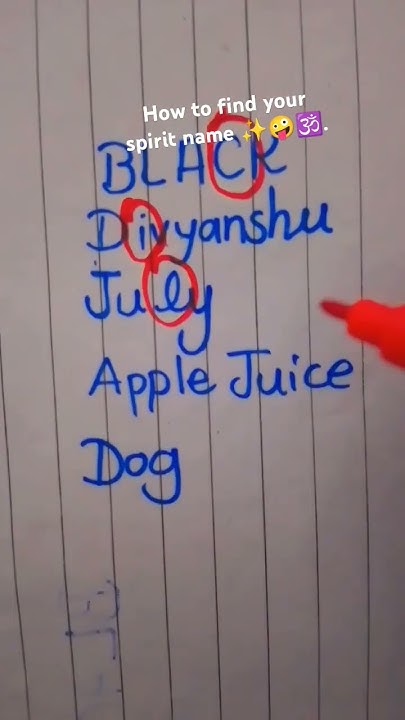 How to find your
spirit name ✨🤪🕉.
BLACK
Divyanshu
July
Apple Juice
Dog